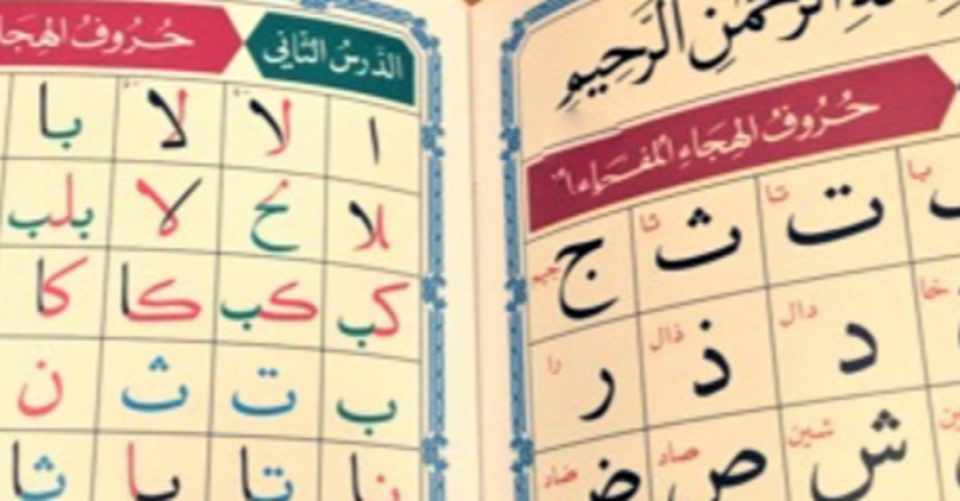 الرَّحْمٰنِ الرَّحِيمِ
حُرُوفُ الهِجَاءِ
ت تا ث ثا ج جيم
خا
د دال ذ ذال ر را
ش شين ص صاد ض ضاد
الدَّرسُ الثَّانِي
حُرُوفُ الهِجَا
ا لا لا با
لا لا بلب
كب كب كا كا
ب ت ث ن
نا تا يا ثا